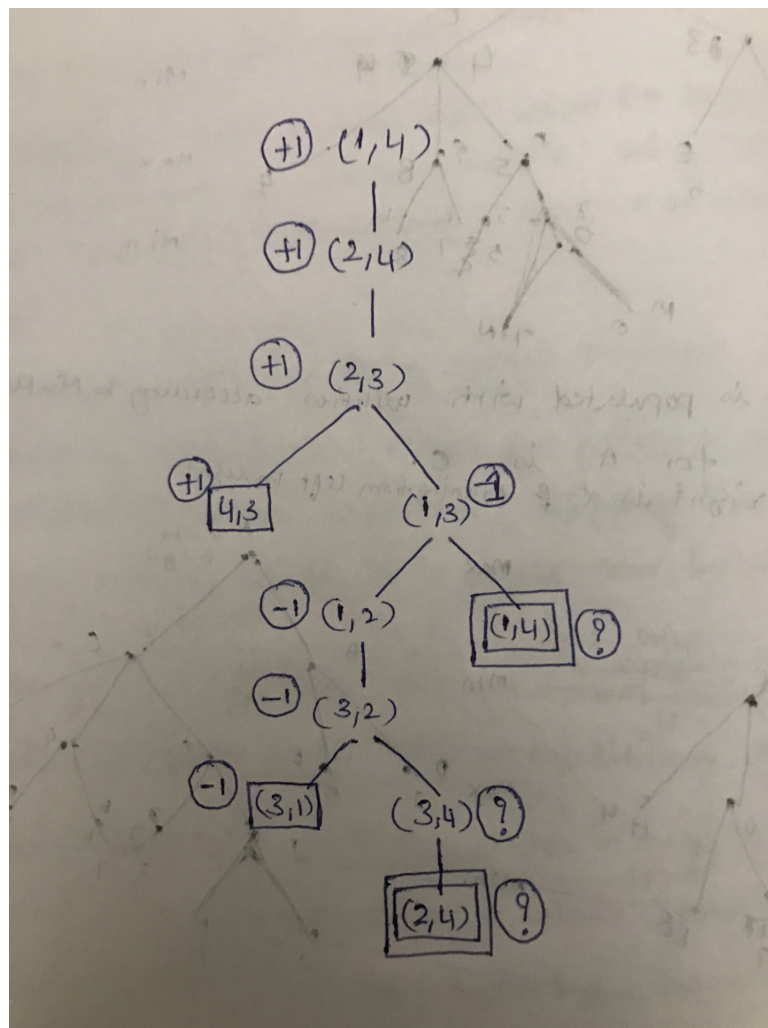 +1 (1,4)
+1 (2,4)
+1 (2,3)
+1 4,3
(1,3) -1
-1 (1,2)
(1,4) ?
-1 (3,2)
-1 (3,1)
(3,4) ?
(2,4) ?